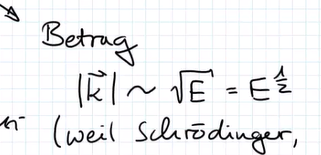 Betrag
|k⃗| ~ √E = E^½
(weil Schrödinger,